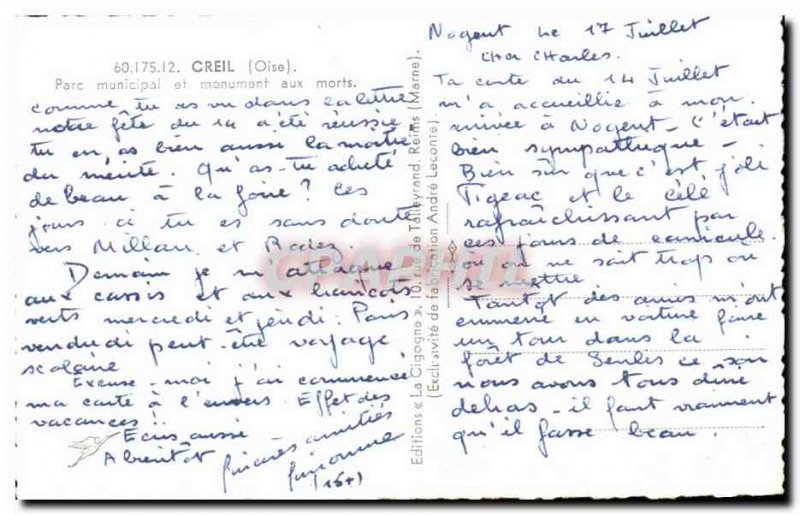 Nogent le 17 Juillet
Cher Charles.
Ta carte du 14 Juillet
m'a accueillie à mon
arrivée à Nogent - C'était
bien sympathique -
Bien sûr que c'est joli
et le Célé
rafraîchissant par
ces jours de canicule
où on ne sait trop où
se mettre.
Tantôt des amis m'ont
emmené en voiture faire
un tour dans la
forêt de Senlis ce soir
nous avons tous dîné
dehors - il faut vraiment
qu'il fasse beau.
60.175.12. CREIL (Oise).
Parc municipal et monument aux morts.
comme tu as vu dans la lettre
notre fête du 14 a été réussie
tu en as bien aussi la moitié
du mérite. Qu'as-tu acheté
de beau à la foire? Ces
jours ci tu es sans doute
vers Millau et Rodez
Demain je m'attaque
aux cassis et aux haricots
verts mercredi et jeudi. Puis
vendredi peut-être voyage
scolaire
Excuse-moi j'ai commencé
ma carte à l'envers. Effet des
vacances!
Ecris aussi
A bientôt
Sincères amitiés
Editions « La Cigogne », 10, rue de Talleyrand, Reims (Marne).
(Exclusivité de fabrication André Leconte).